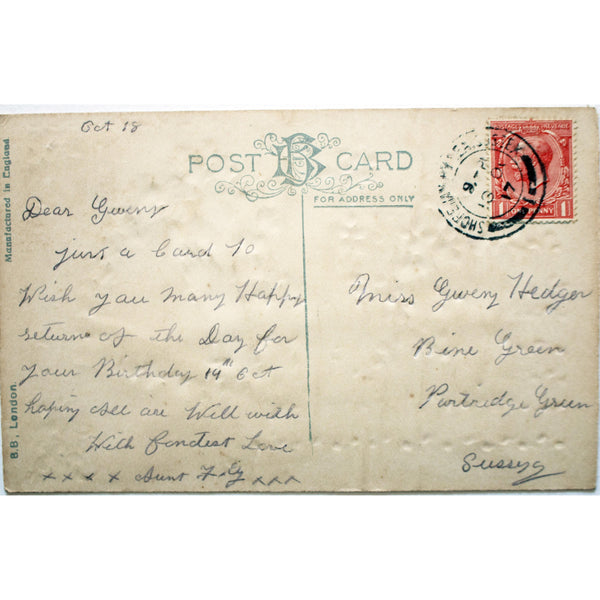 Oct 18
POST CARD
FOR ADDRESS ONLY
Manufactured in England
B.B, London.
Dear Gweny
just a Card to
Wish you many Happy
return of the Day for
your Birthday 19th Oct
hoping all are Well with
With fondest Love
x x x x Aunt x x x
Miss Gweny Hedger
Bine Green
Partridge Green
Sussex
POSTAGE REVENUE
1 ONE PENNY 1